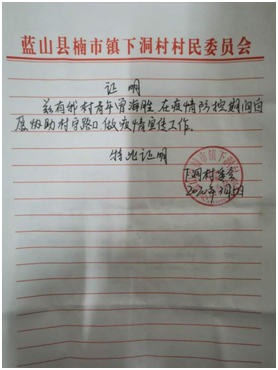 蓝山县楠市镇下洞村村民委员会
证明
兹有我村青年曾海胜 在疫情防控期间自
愿协助村守路口,做疫情宣传工作。
特此证明
下洞村委会